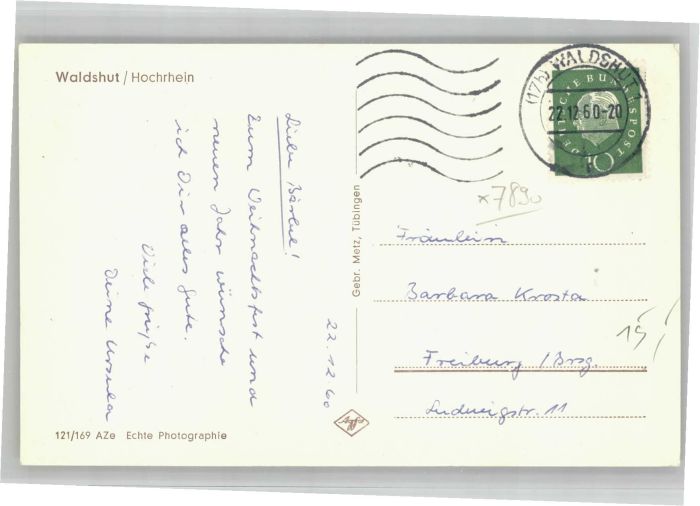 Waldshut / Hochrhein
Liebe Bärbel!
Zum Weihnachtsfest und
neuen Jahr wünsche
ich Dir alles Gute.
Viele Grüße
Deine Ursula
22.12.60
121/169 AZe Echte Photographie
Gebr. Metz, Tübingen
Agfa
(17b) WALDSHUT 1
22.12.60-20
DEUTSCHE BUNDESPOST
10
x7890
Fräulein
Barbara Krosta
Freiburg /Brsg.
Ludwigstr. 11
15,